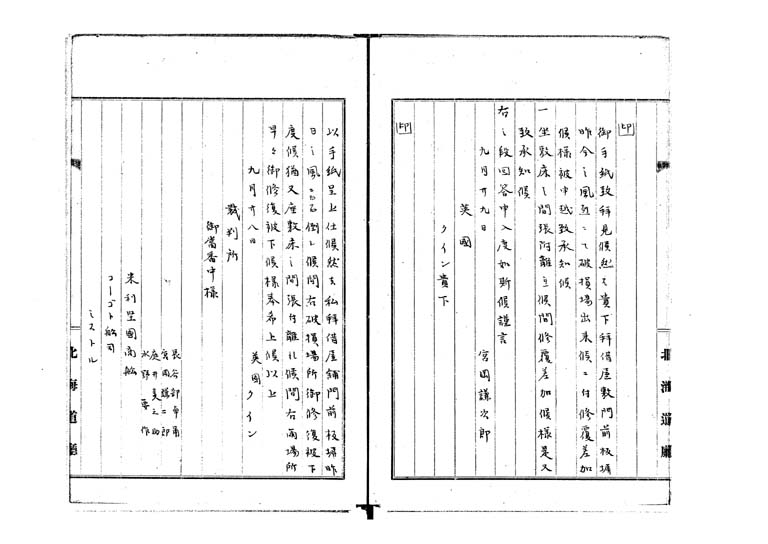 印
御手紙致拝見候然ハ貴下拝借屋敷門前板塀
昨今之風
ニて破損場出来候ニ付修覆差加
候様被申越致承知候
一坐敷床之間張附離立候間修覆差加候様是又
致承知候
右之段回答申入度如斯候謹言
九月廿九日
宮田謙次郎
英國
クイン貴下
印
以手紙呈上仕候然者私拝借屋舗門前板塀昨
日之風ニ而吹倒し候間右破損場所御修復被下
度候猶又座敷床之間張付離れ候間右両場所
早々御修復被下候様奉希上候以上
九月廿八日
英國クイン
裁判所
御當番中様
米利堅國商船
コーゴト船司
ミストル
長谷部
水野
北海道廳
北海道廳